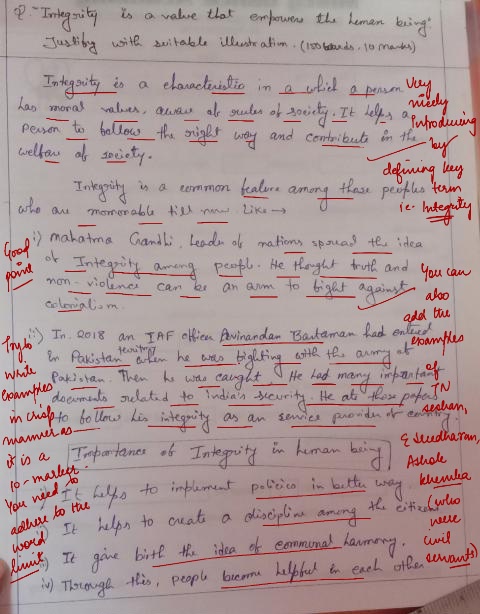 Q. "Integrity is a value that empowers the human being".
Justify with suitable illustration. (150 words, 10 marks)
Integrity is a characteristic in a which a person
has moral values, aware of rules of society. It helps a
person to follow the right way and contribute in the
welfare of society.
Very
nicely
introducing
by
defining key
term
i.e. Integrity
Integrity is a common feature among those peoples
who are memorable till now. Like →
Good
point
i) Mahatma Gandhi, Leader of nations spread the idea
of Integrity among people. He thought truth and
non-violence can be an arm to fight against
colonialism.
You can
also
add the
examples
of
TN
seshan,
E Sreedharan,
Ashok
khemka
(who
were
civil
servants)
ii) In 2018 an IAF officer Avinandan Bartaman had entered
in Pakistan territory when he was fighting with the army of
Pakistan. Then he was caught. He had many important
documents related to India's security. He ate those papers
to follow his integrity as an service provider of country.
Try to
write
examples
in crisp
manner as
it is a
10-marker.
You need to
adhere to the
word
limit.
Importance of Integrity in human being
It helps to implement policies in better way.
It helps to create a discipline among the citizen
It give birth the idea of communal harmony.
iv) Through this, people become helpful in each other